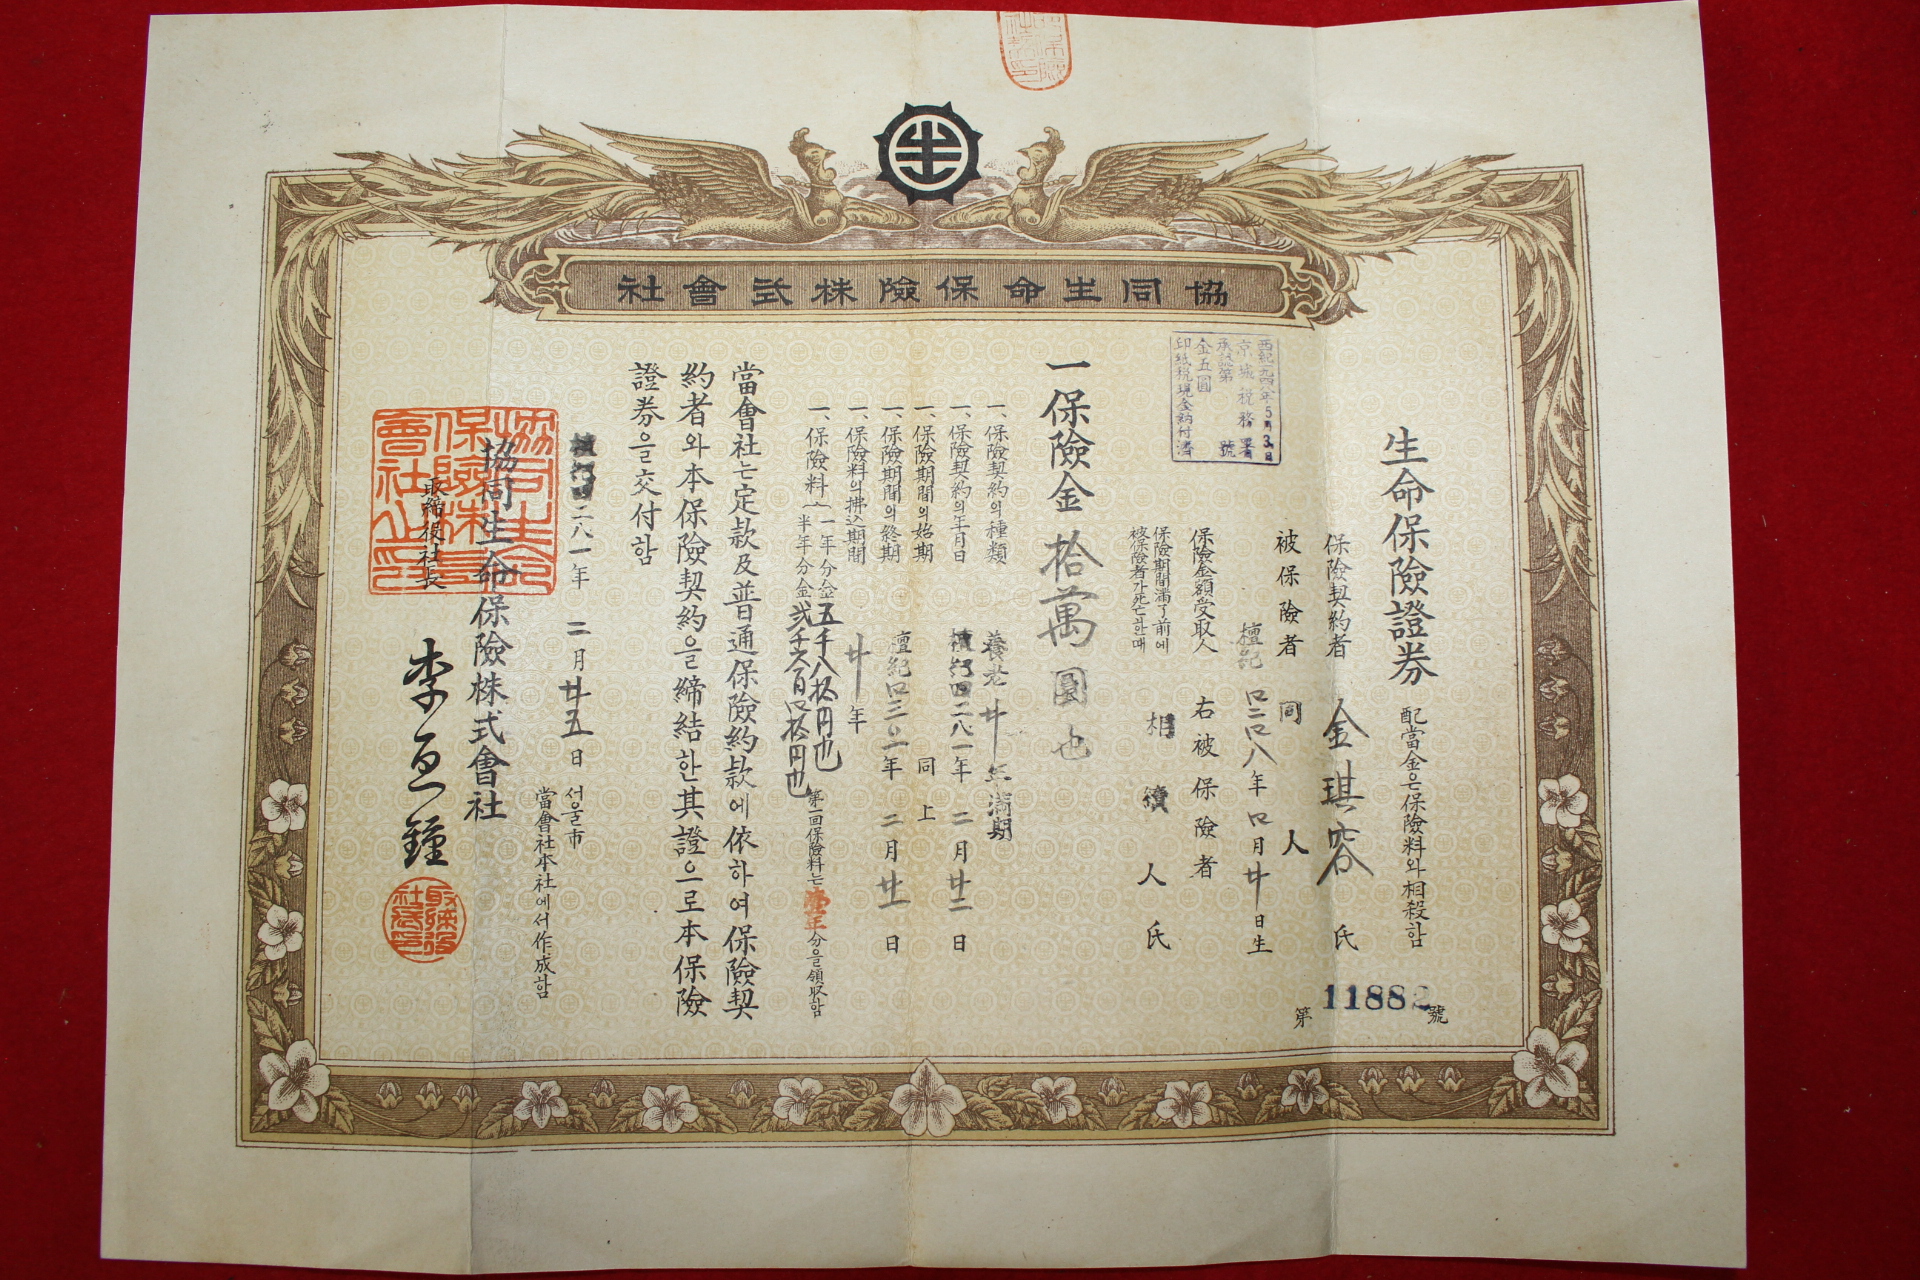 協同生命保險株式會社
生命保險證券
配當金은保險料와相殺함
第11882號
保險契約者 金琪容 氏
被保險者 同人
檀紀四二八年 月廿日生
保險金額受取人 右被保險者
保險期間滿了前에
被保險者가死亡한때
相續人 氏
西紀一九四八年5月3日
京城稅務署
承認第 號
金五圓
印紙稅現金納付濟
一保險金 拾萬圓也
一、保險契約의種類 養老廿年滿期
一、保險契約의年月日 檀紀四二八一年二月廿二日
一、保險期間의始期 同上
一、保險期間의終期 檀紀四三〇一年二月廿一日
一、保險料의拂込期間 廿年
一、保險料 一年分金五千八拾円也
半年分金貳千六百四拾円也
第一回保險料는壹年分을領収함
當會社는定款及普通保險約款에依하여保險契
約者와本保險契約을締結한其證으로本保險
證券을交付함
檀紀四二八一年二月廿五日
서울市
當會社本社에서作成함
協同生命保險株式會社
取締役社長 李亘鍾